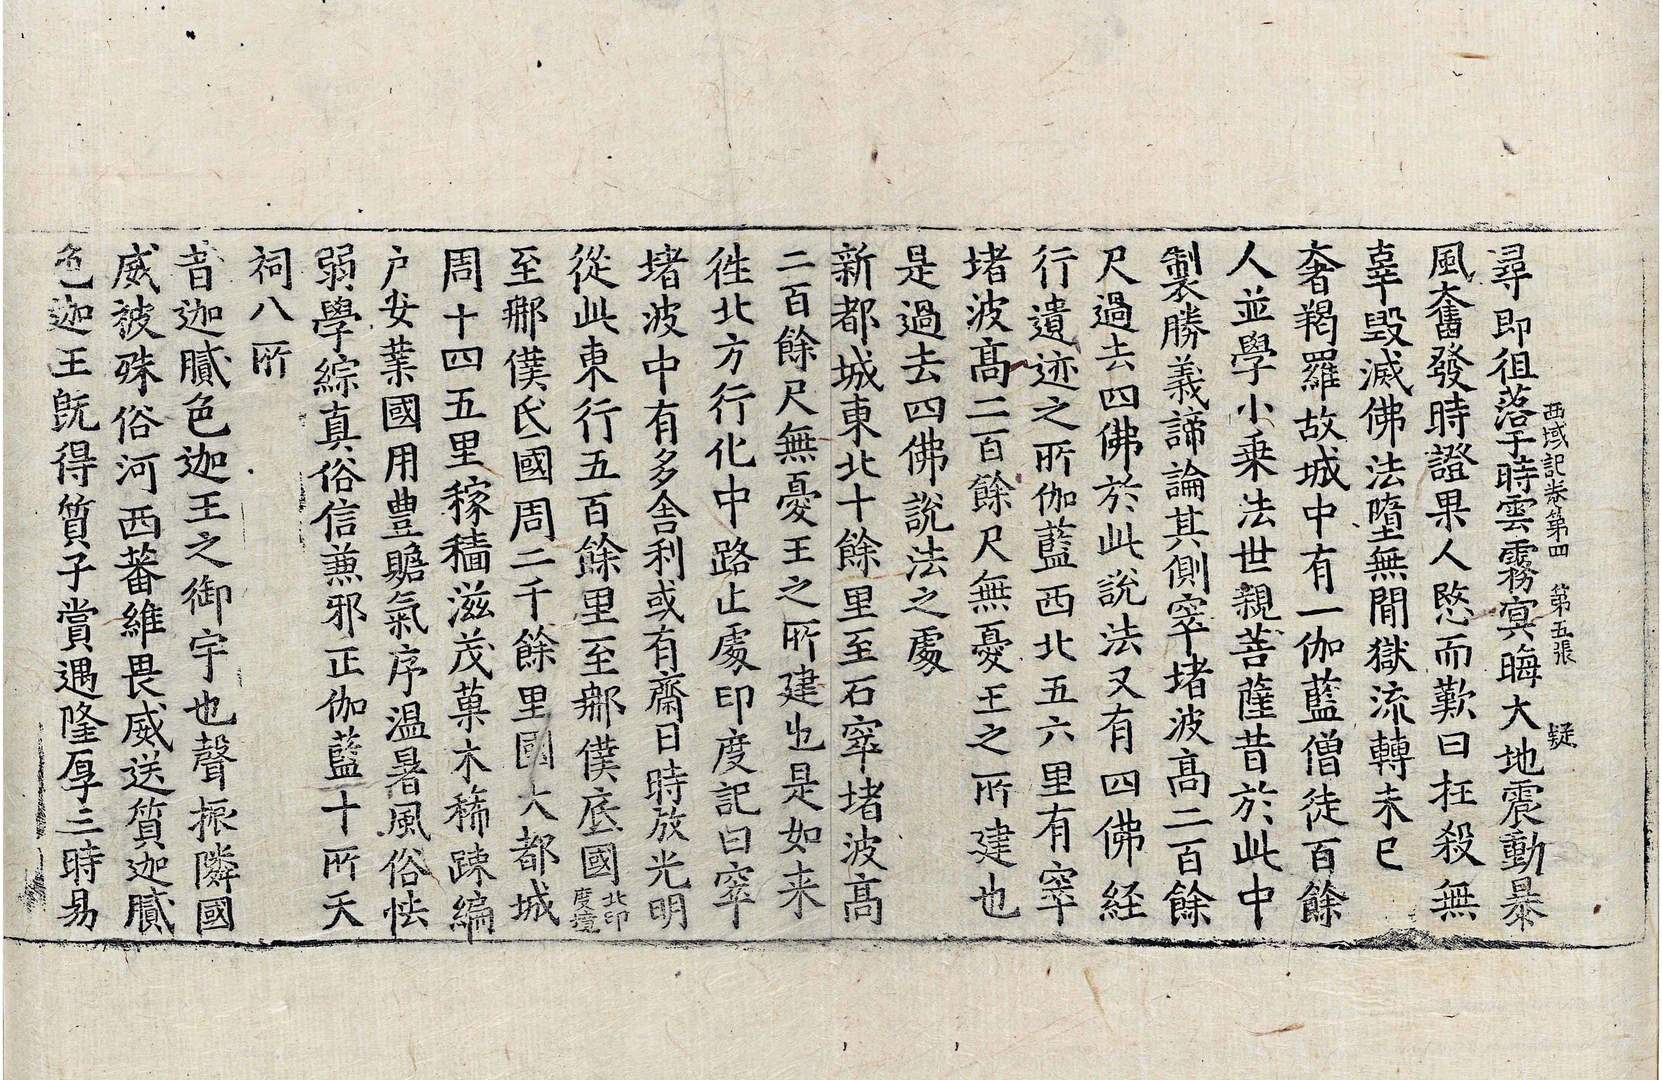 西域記卷第四　第五張　疑
尋即徂落于時雲霧冥晦大地震動暴
風奮發時證果人愍而歎曰枉殺無
辜毀滅佛法墮無間獄流轉未已
奢羯羅故城中有一伽藍僧徒百餘
人並學小乗法世親菩薩昔於此中
製勝義諦論其側窣堵波髙二百餘
尺過去四佛於此說法又有四佛経
行遺迹之所伽藍西北五六里有窣
堵波髙二百餘尺無憂王之所建也
是過去四佛說法之處
新都城東北十餘里至石窣堵波髙
二百餘尺無憂王之所建也是如来
徃北方行化中路止處印度記曰窣
堵波中有多舍利或有齋日時放光明
從此東行五百餘里至至那僕底國北印度境
至那僕氐國周二千餘里國大都城
周十四五里稼穡滋茂菓木稀踈編
户安業國用豊贍氣序温暑風俗怯
弱學綜真俗信兼邪正伽藍十所天
祠八所
昔迦膩色迦王之御宇也聲振隣國
威被殊俗河西蕃維畏威送質迦膩
色迦王旣得質子賞遇隆厚三時易